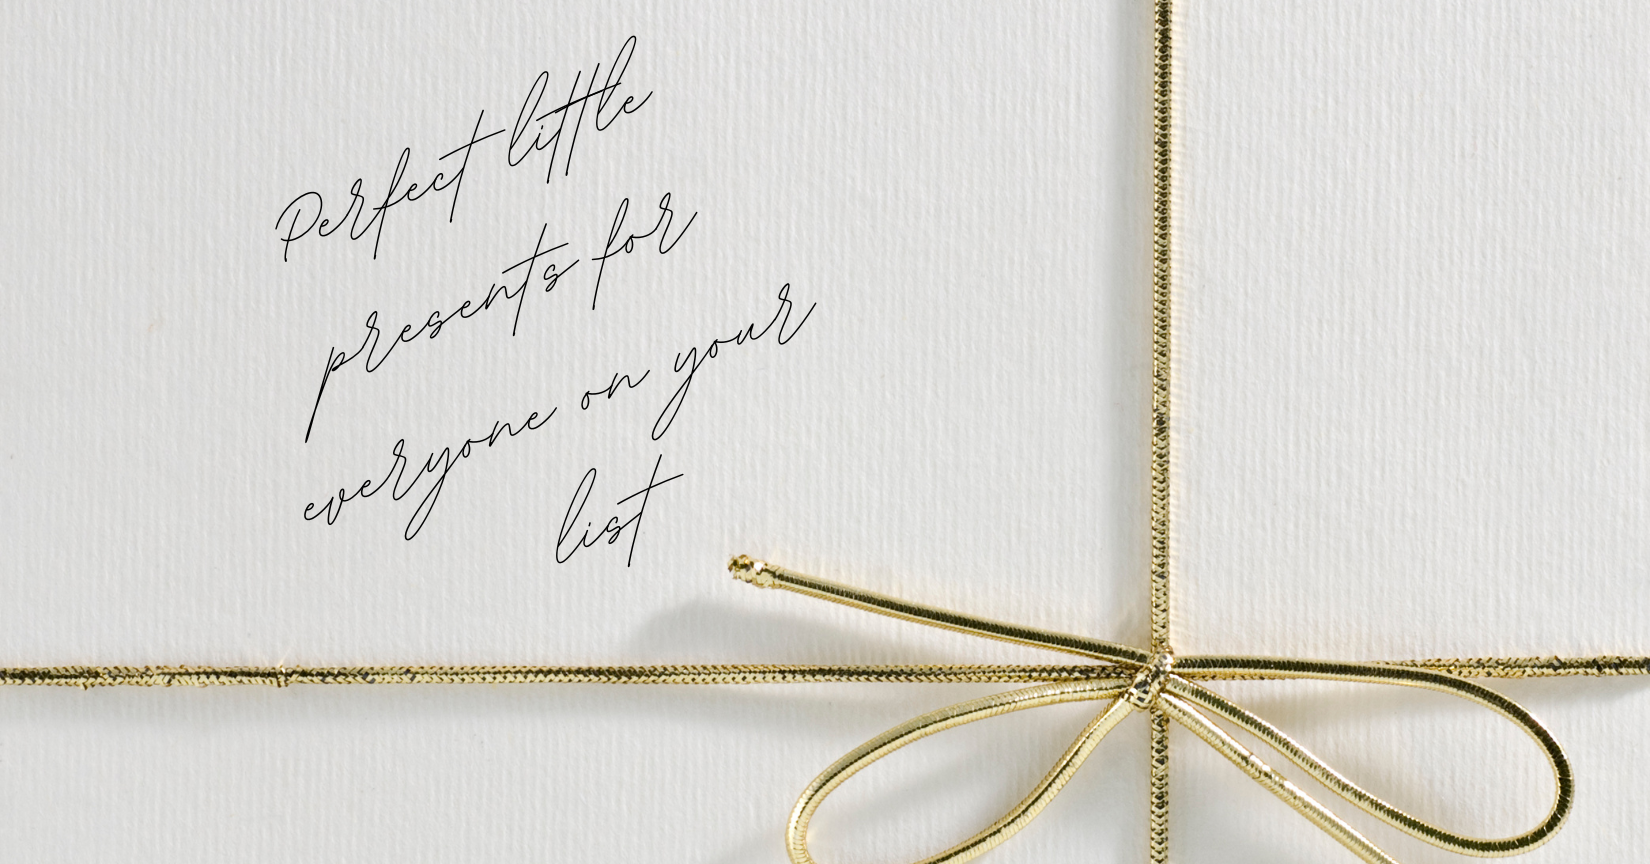 Perfect little
presents for
everyone on your
list